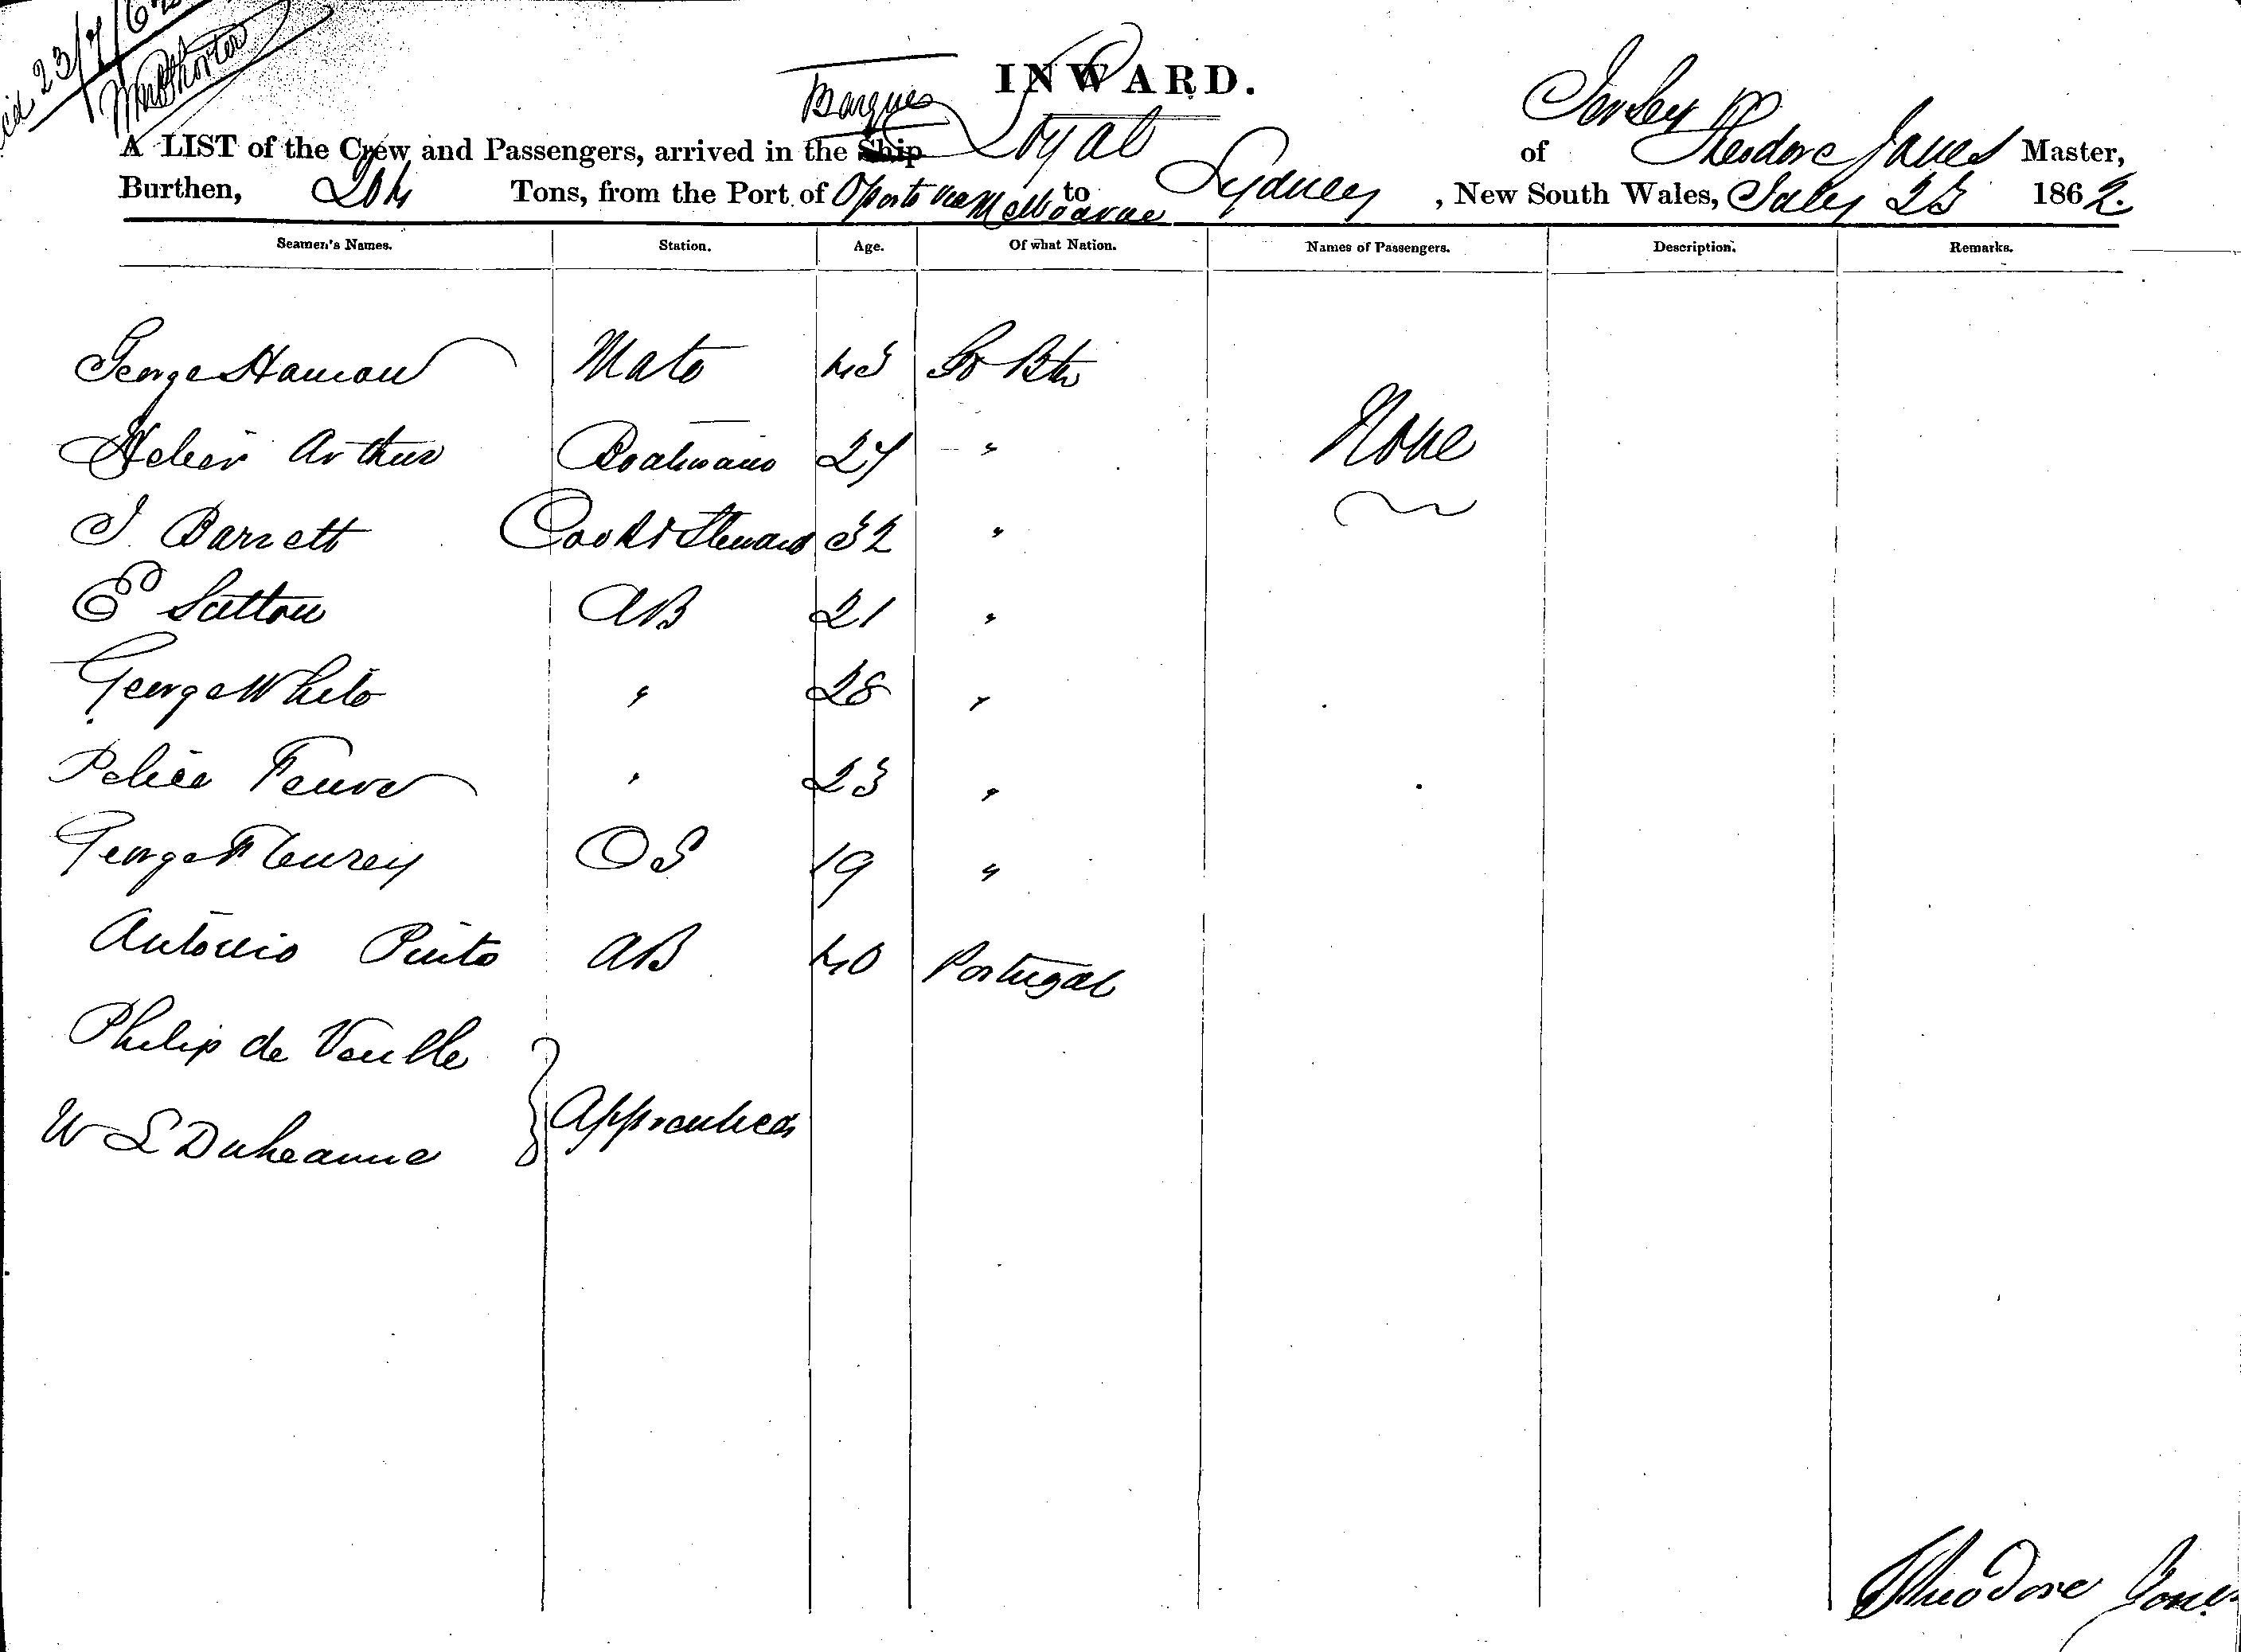 23/7/62
INWARD.
Jersey
A LIST of the Crew and Passengers, arrived in the Ship Barque Loyal of Theodore Jones Master,
Burthen, 204 Tons, from the Port of Oporto via Melbourne to Sydney, New South Wales, July 23 1862.
Seamen's Names. Station. Age. Of what Nation. Names of Passengers. Description. Remarks.
George Hamon Mate 43 Gt Btn
Helier Arthur Boatswain 27 " None
J Barrett Cook & Steward 32 "
E Sutton AB 21 "
George White " 28 "
Feuvre " 23 "
George Fleurey OS 19 "
Antonio Pinto AB 40 Portugal
Philip de Veulle
Apprentices
W L Duheaume
Theodore Jones